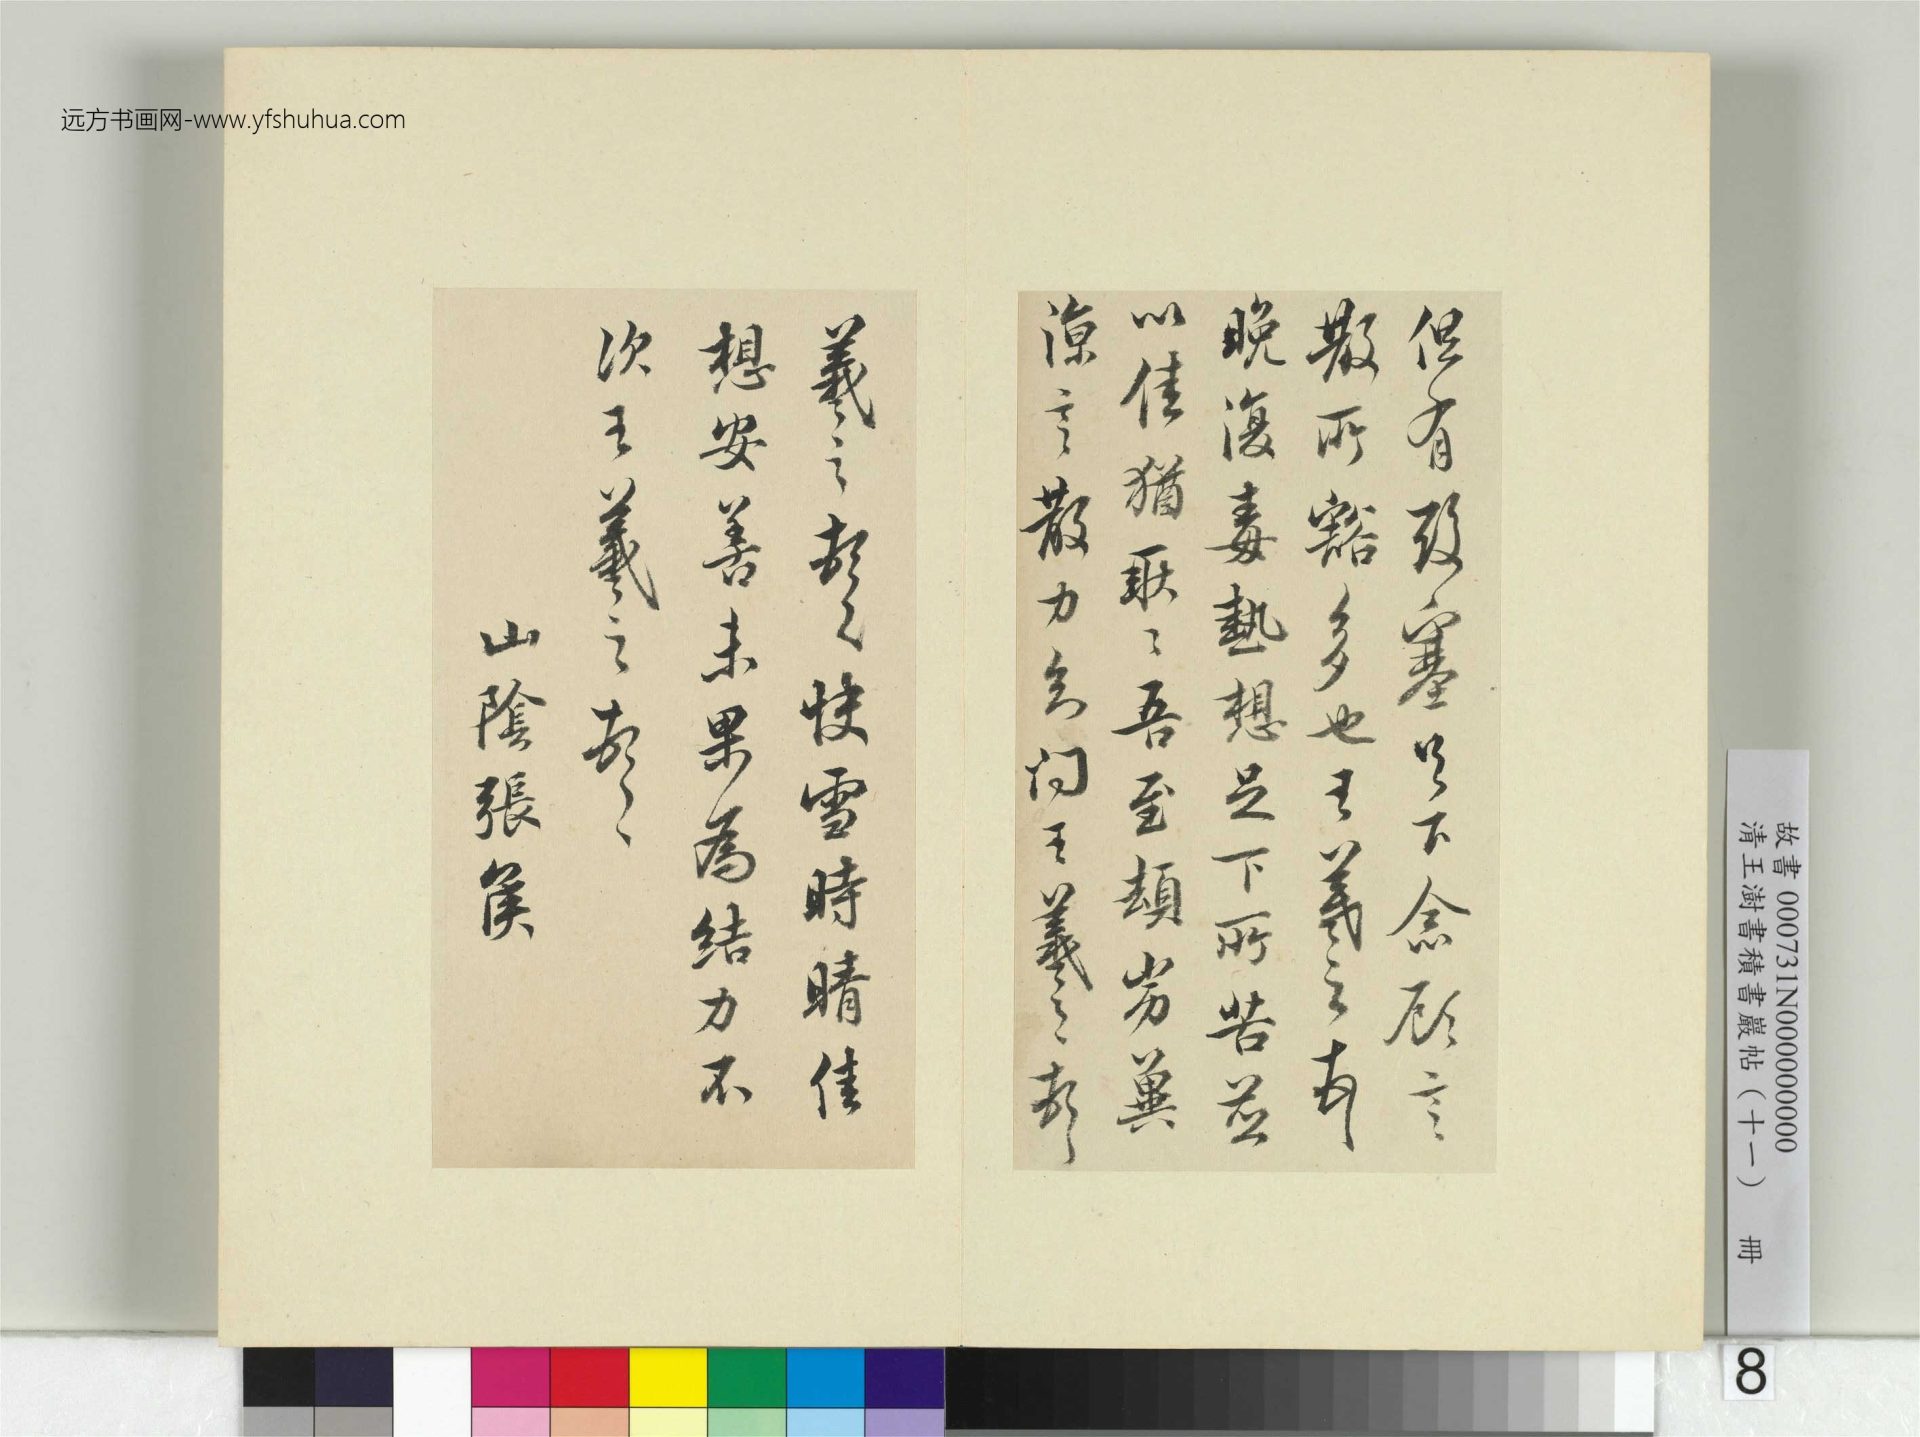 远方书画网-www.yfshuhua.com
但有致塞足下念顧言
散所豁多也王羲之
晚復毒熱想足下所苦並
以佳猶耿〻吾至頓劣冀
涼言散力知問王羲之頓首
羲之頓首快雪時晴佳
想安善未果為結力不
次王羲之頓首
山陰張侯
故書 000731N000000000
清王澍書積書巖帖(十一) 冊
8